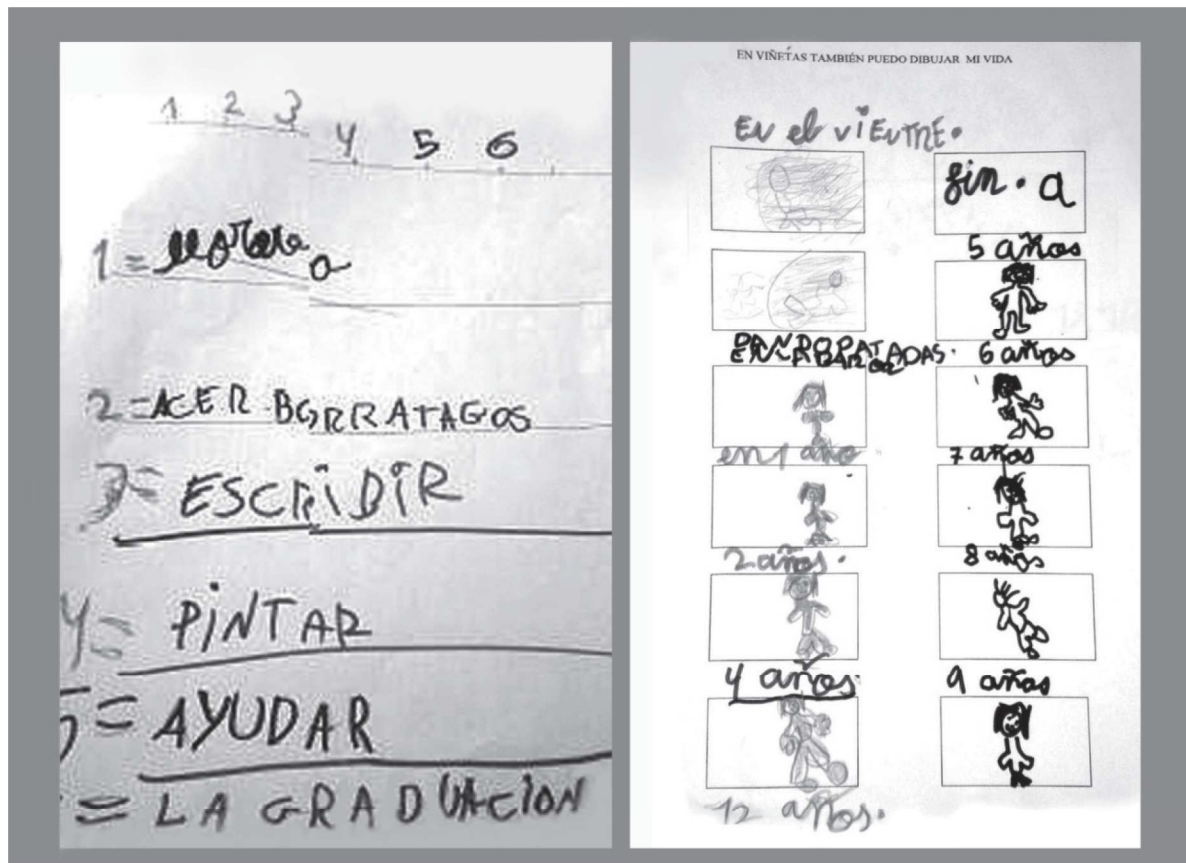 1 2 3 4 5 6
1=
2=ACER BORRATAGOS
3= ESCRIBIR
4= PINTAR
5= AYUDAR
= LA GRADUACION
EN VIÑETAS TAMBIÉN PUEDO DIBUJAR MI VIDA
En el viENTRE.
PATADAS.
en 1 año
2 años.
4 años
12 años.
fin. a
5 años
6 años
7 años
8 años
9 años